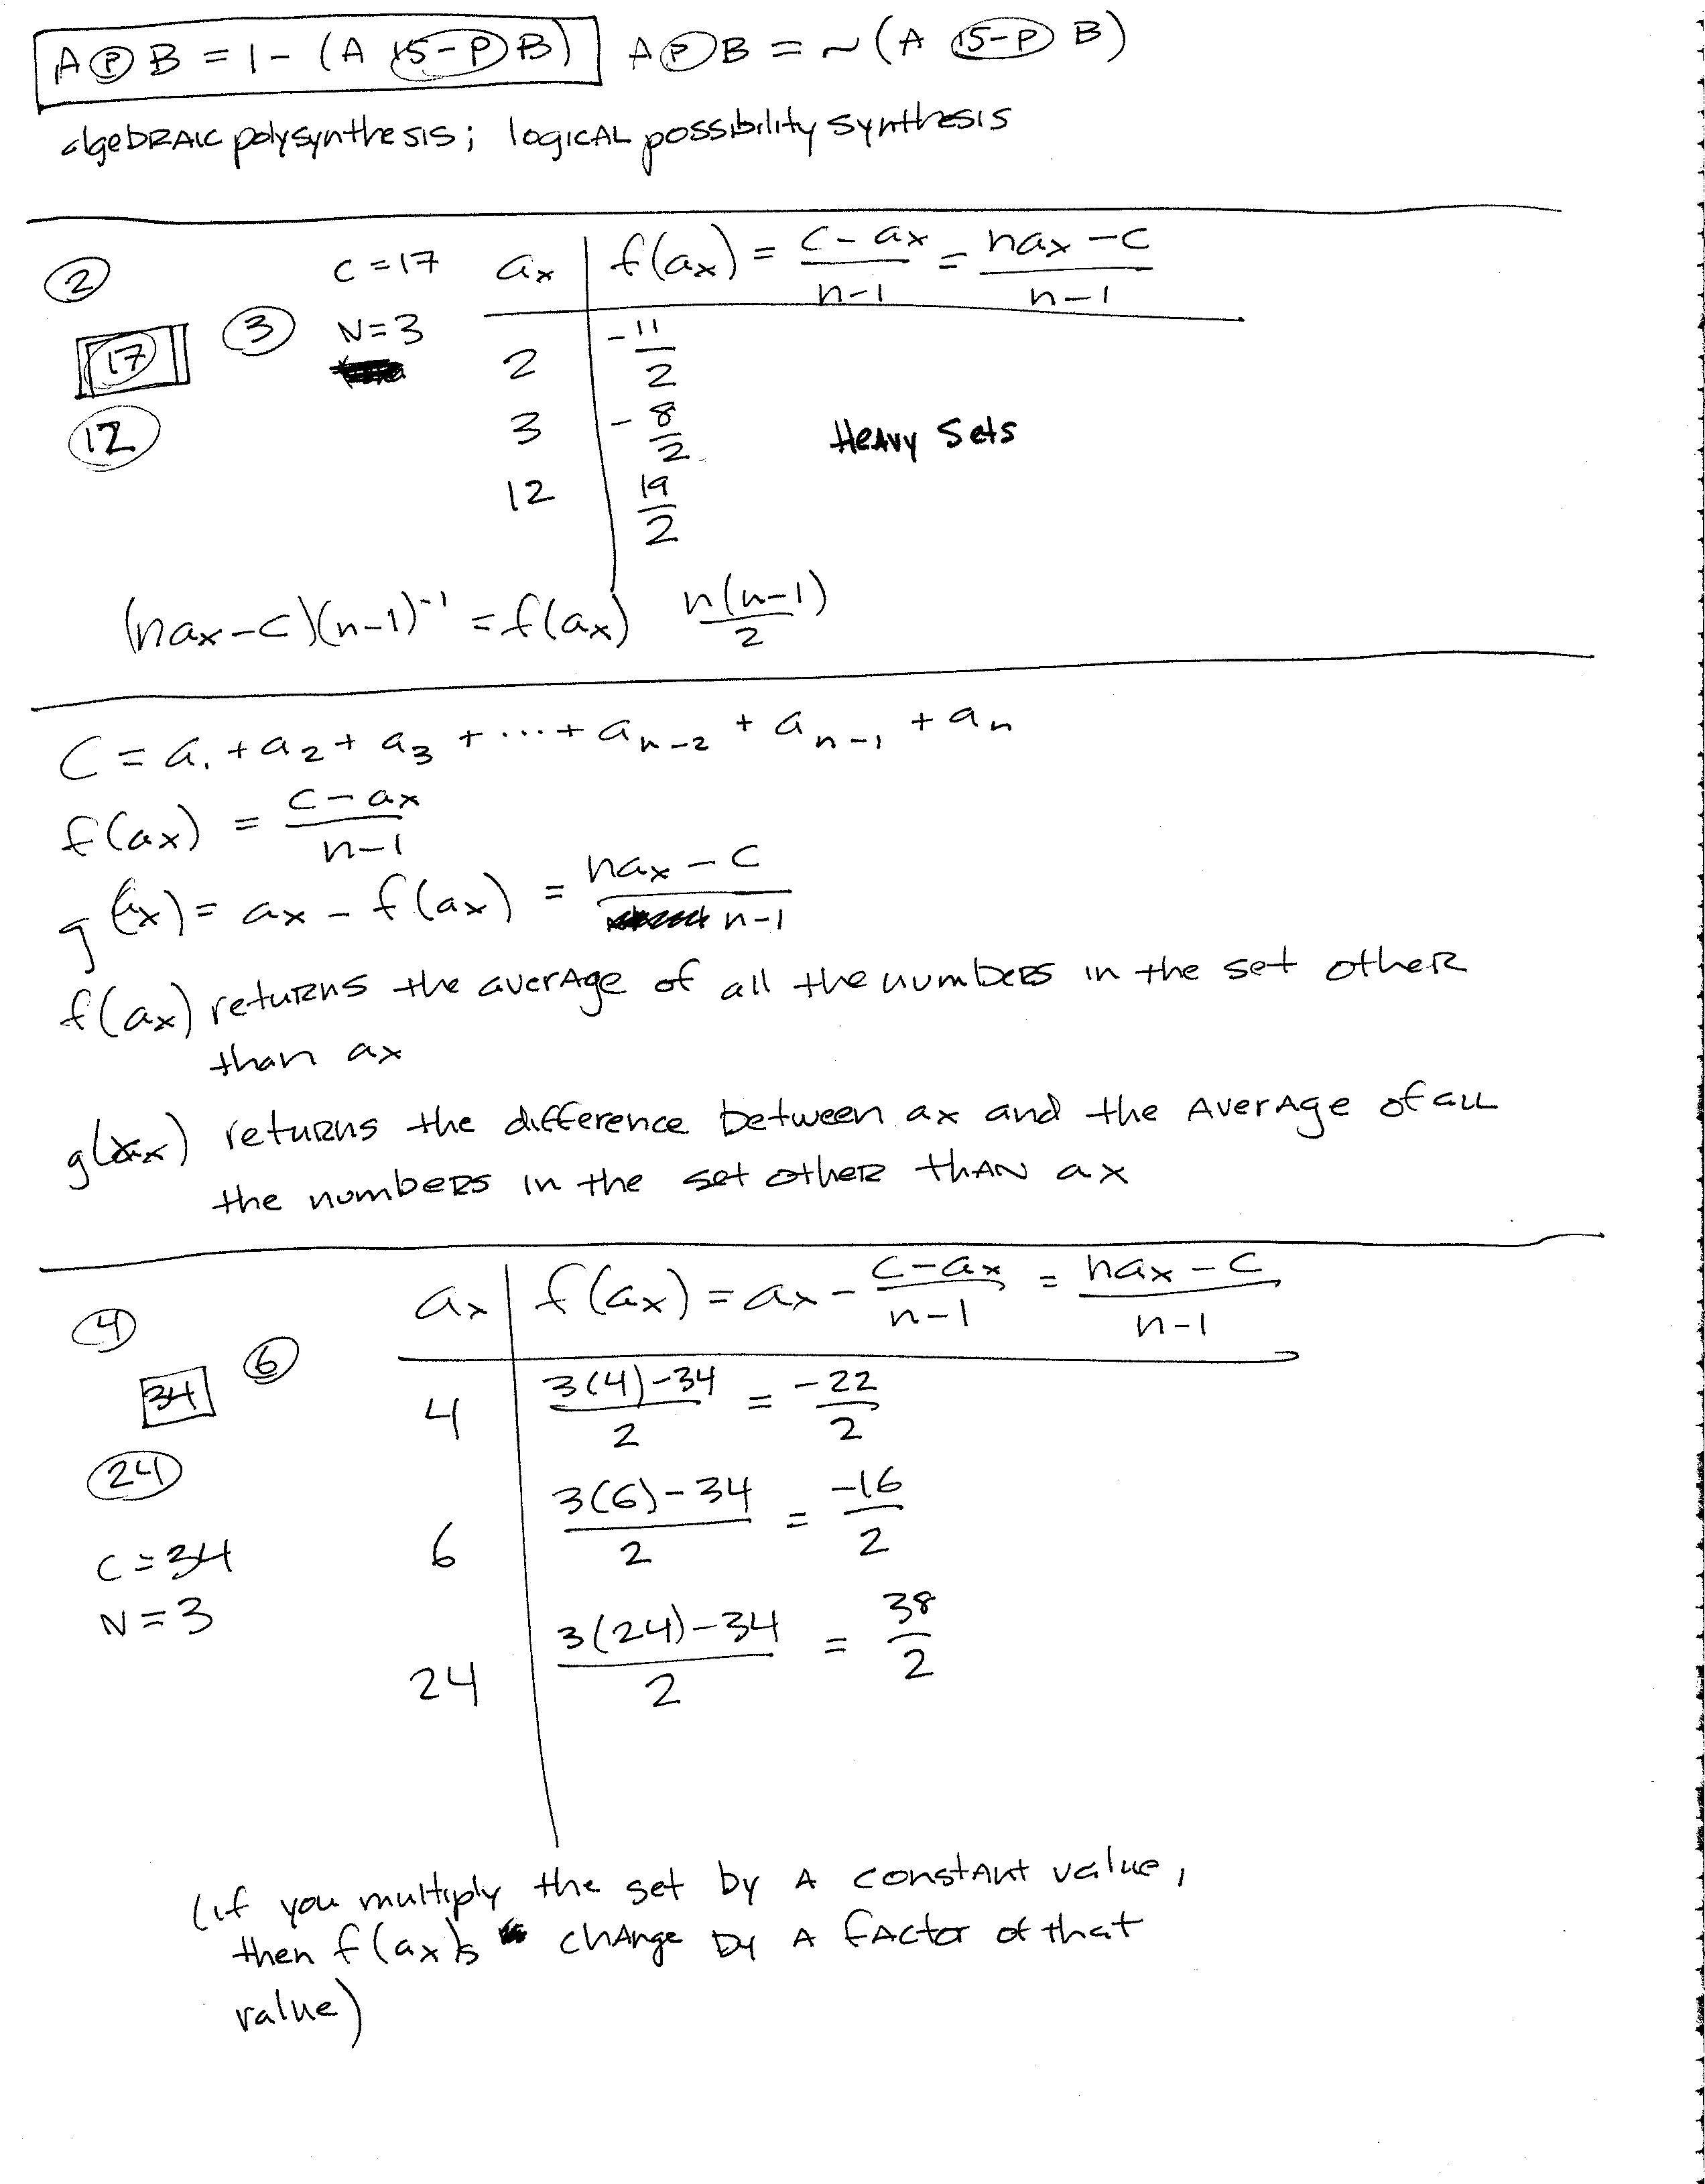 A Ⓟ B = 1 - (A 15-P B) A Ⓟ B = ~ (A 15-P B)
algebraic polysynthesis; logical possibility synthesis
2 C = 17 ax f(ax) = C - ax / n-1 = nax - C / n-1
17 3 N = 3
2 -11/2
12 3 -8/2 Heavy Sets
12 19/2
(nax - C)(n-1)^-1 = f(ax) n(n-1)/2
C = a1 + a2 + a3 + ... + an-2 + an-1 + an
f(ax) = C - ax / n-1
g(ax) = ax - f(ax) = nax - C / n-1
f(ax) returns the average of all the numbers in the set other
than ax
g(ax) returns the difference between ax and the average of all
the numbers in the set other than ax
ax f(ax) = ax - C-ax / n-1 = nax - C / n-1
4 6
34 4 3(4)-34 / 2 = -22/2
24
6 3(6)-34 / 2 = -16/2
C = 34
N = 3
24 3(24)-34 / 2 = 38/2
(if you multiply the set by a constant value,
then f(ax)s change by a factor of that
value)